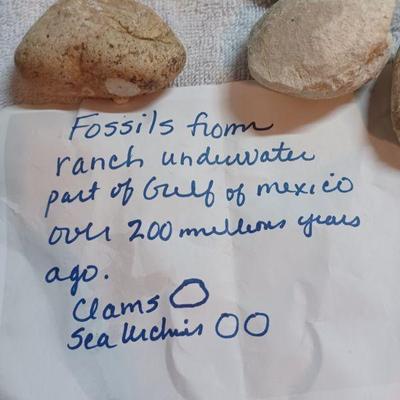 Fossils from
ranch underwater
part of Gulf of mexico
over 200 millions years
ago.
Clams
Sea Urchins